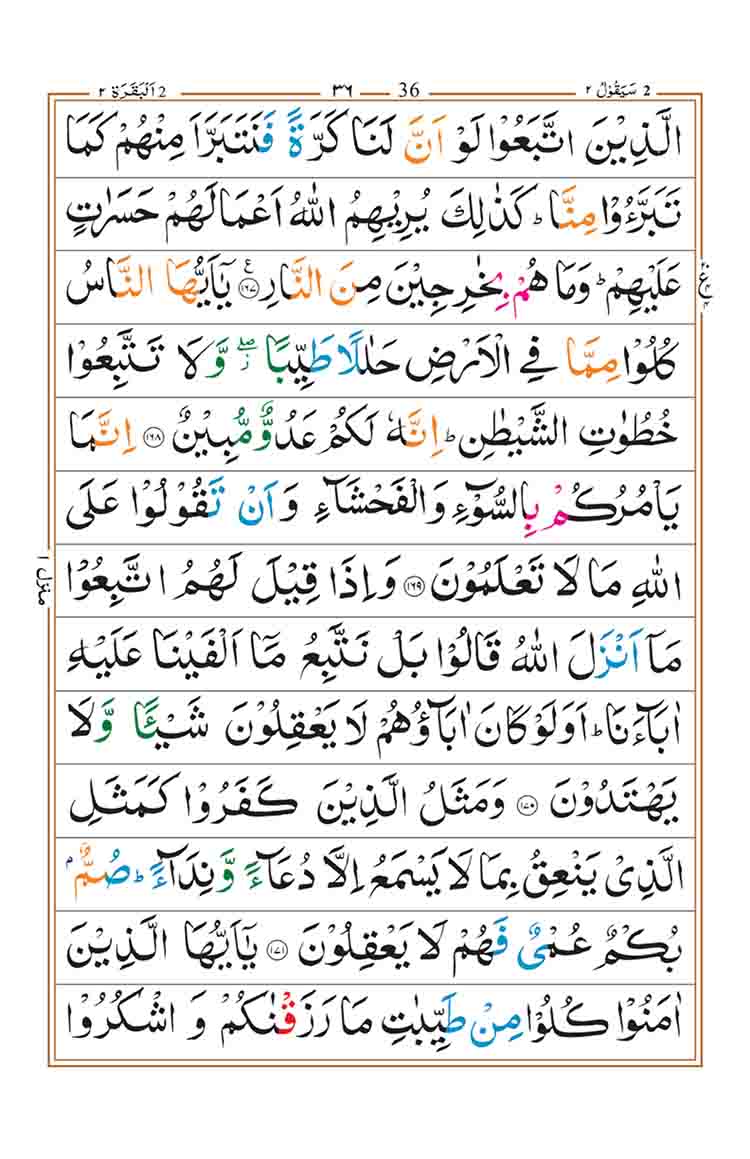 2 سَيَقُوْلُ ٢ 36 ٣٦ 2 اَلْبَقَرَة ٢
الَّذِيْنَ اتَّبَعُوْا لَوْ اَنَّ لَنَا كَرَّةً فَنَتَبَرَّاَ مِنْهُمْ كَمَا
تَبَرَّءُوْا مِنَّا ؕ كَذٰلِكَ يُرِيْهِمُ اللّٰهُ اَعْمَالَهُمْ حَسَرٰتٍ
عَلَيْهِمْ ؕ وَمَا هُمْ بِخٰرِجِيْنَ مِنَ النَّارِ ﴿١٦٧﴾ ع يٰۤاَيُّهَا النَّاسُ
كُلُوْا مِمَّا فِى الْاَرْضِ حَلٰلًا طَيِّبًا ۖ ز وَّلَا تَتَّبِعُوْا
خُطُوٰتِ الشَّيْطٰنِ ؕ اِنَّهٗ لَكُمْ عَدُوٌّ مُّبِيْنٌ ﴿١٦٨﴾ اِنَّمَا
يَاْمُرُكُمْ بِالسُّوْٓءِ وَالْفَحْشَآءِ وَاَنْ تَقُوْلُوْا عَلَى
اللّٰهِ مَا لَا تَعْلَمُوْنَ ﴿١٦٩﴾ وَاِذَا قِيْلَ لَهُمُ اتَّبِعُوْا
مَاۤ اَنْزَلَ اللّٰهُ قَالُوْا بَلْ نَتَّبِعُ مَاۤ اَلْفَيْنَا عَلَيْهِ
اٰبَآءَنَا ؕ اَوَلَوْ كَانَ اٰبَآؤُهُمْ لَا يَعْقِلُوْنَ شَيْـًٔا وَّلَا
يَهْتَدُوْنَ ﴿١٧٠﴾ وَمَثَلُ الَّذِيْنَ كَفَرُوْا كَمَثَلِ
الَّذِىْ يَنْعِقُ بِمَا لَا يَسْمَعُ اِلَّا دُعَآءً وَّنِدَآءً ؕ صُمٌّۢ
بُكْمٌ عُمْىٌ فَهُمْ لَا يَعْقِلُوْنَ ﴿١٧١﴾ يٰۤاَيُّهَا الَّذِيْنَ
اٰمَنُوْا كُلُوْا مِنْ طَيِّبٰتِ مَا رَزَقْنٰكُمْ وَ اشْكُرُوْا
منزل ١